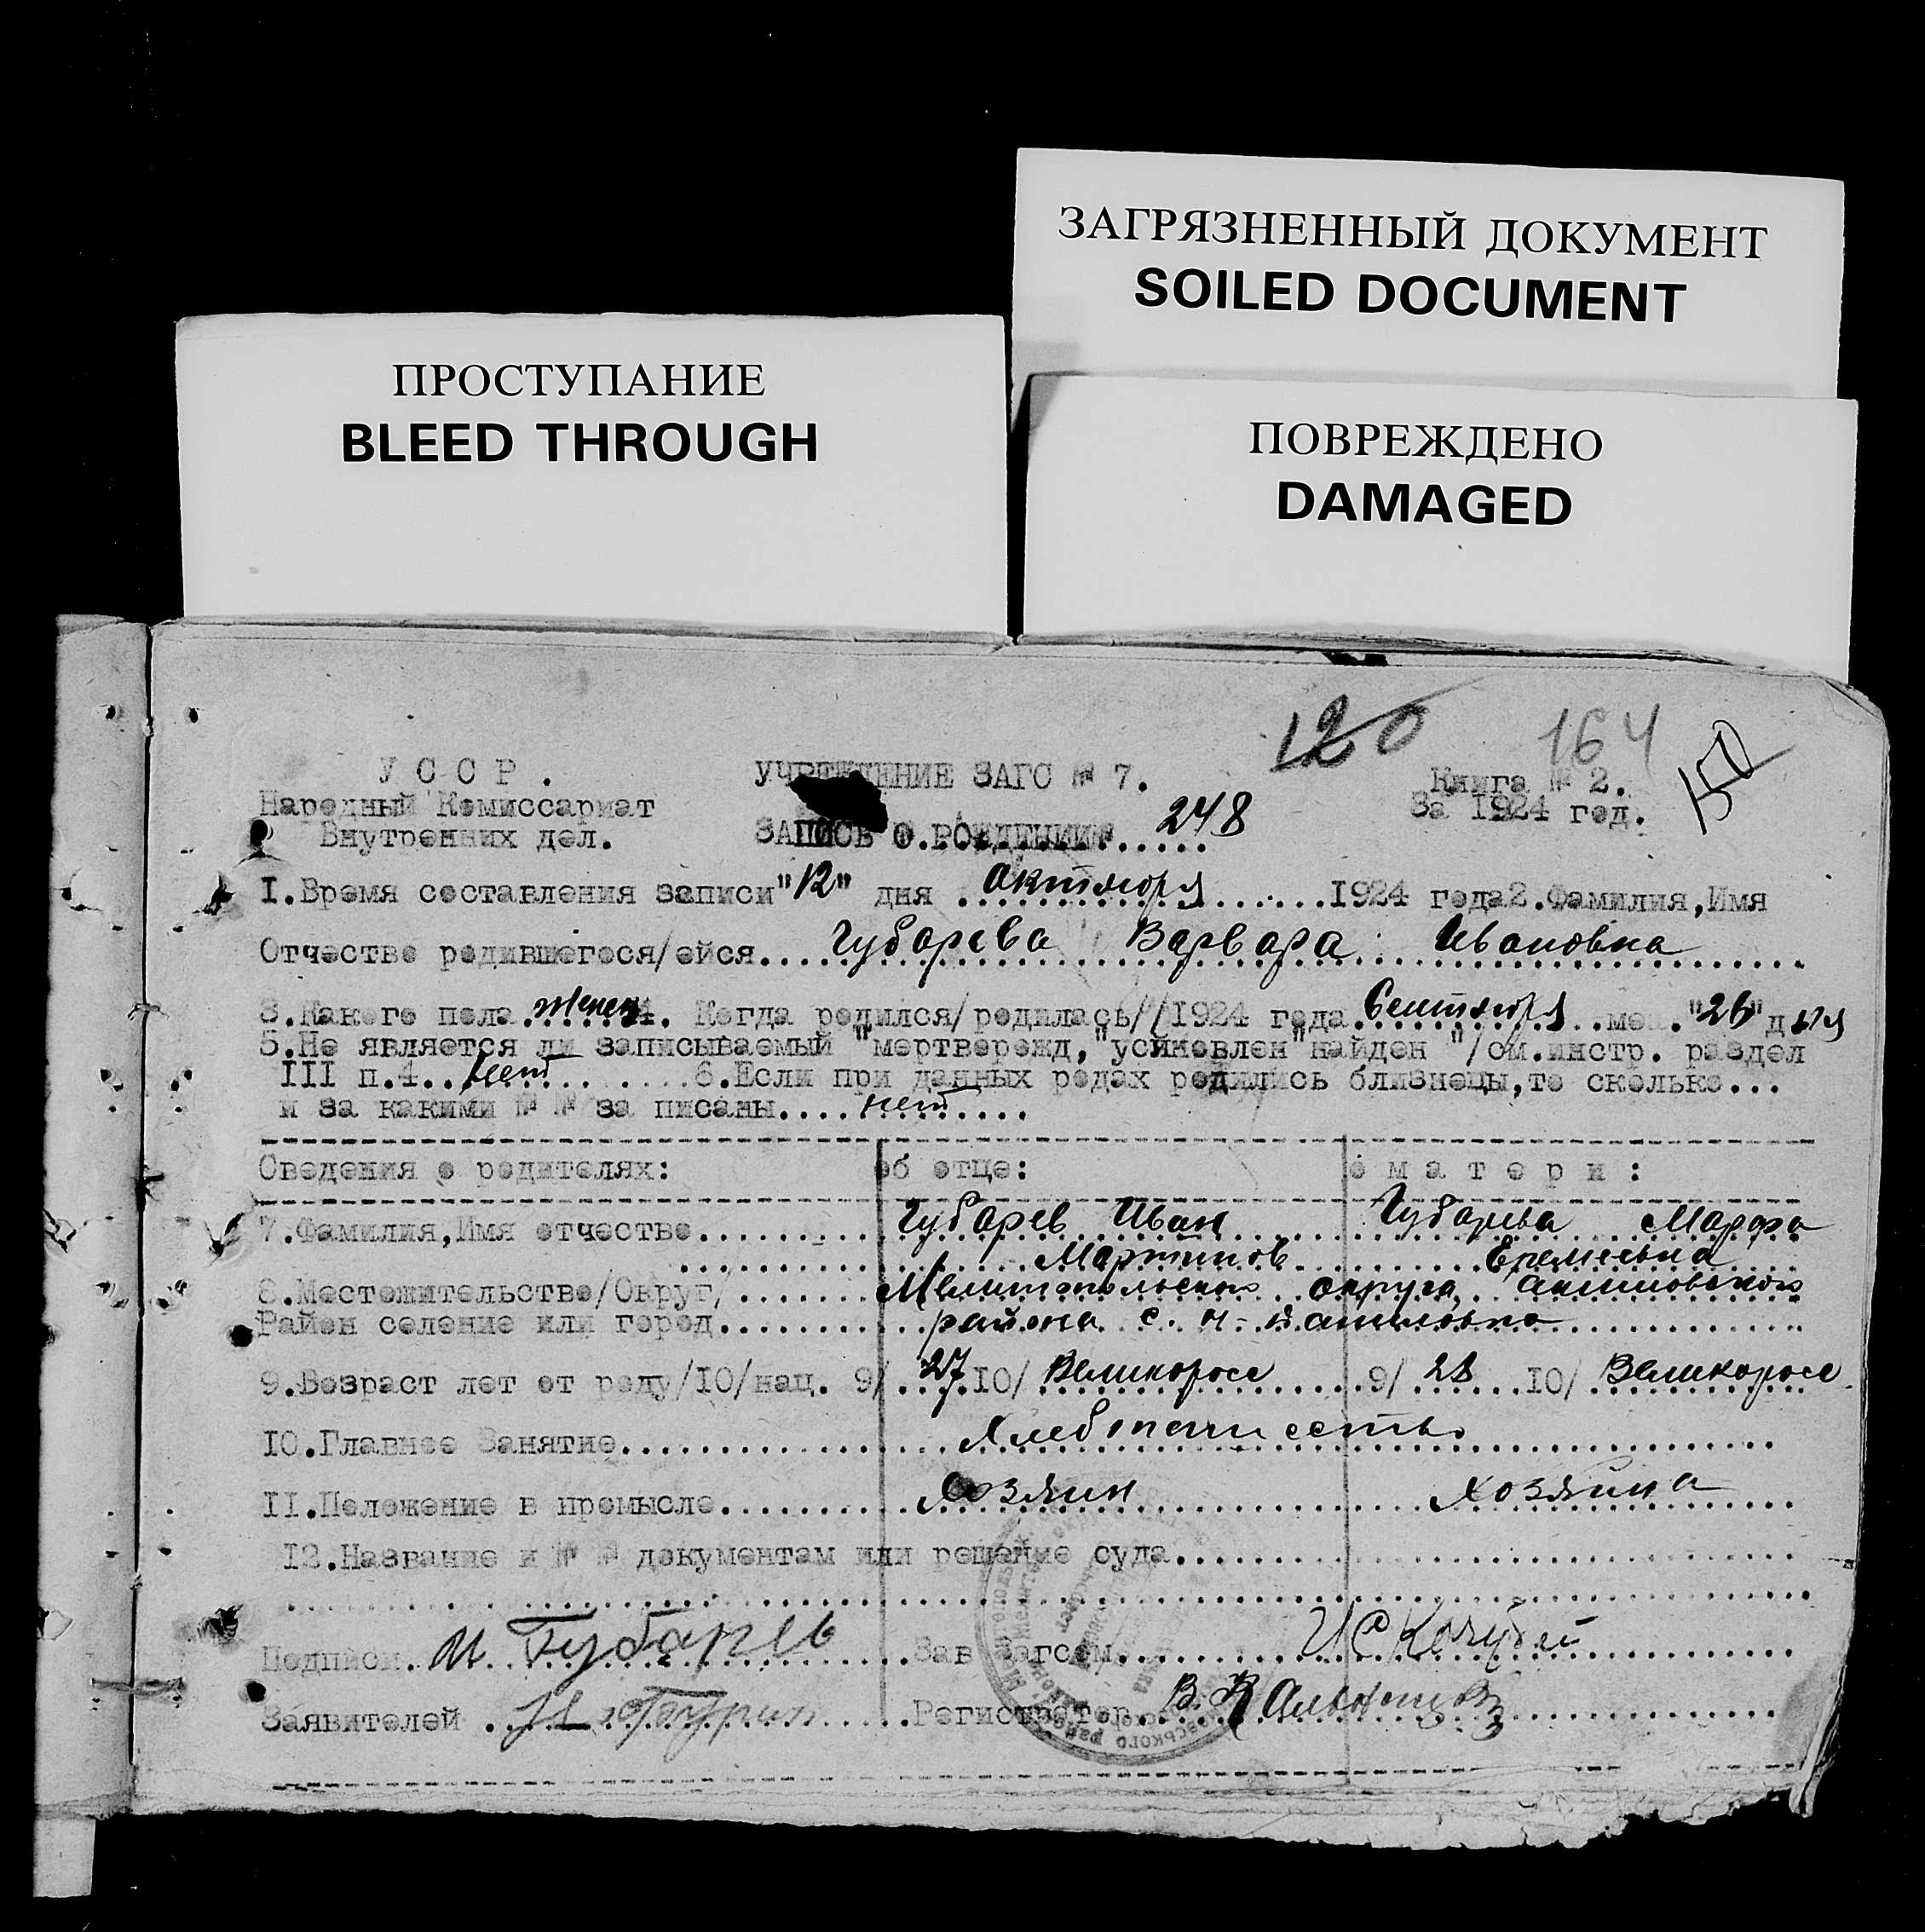 ЗАГРЯЗНЕННЫЙ ДОКУМЕНТ
SOILED DOCUMENT
ПРОСТУПАНИЕ
BLEED THROUGH
ПОВРЕЖДЕНО
DAMAGED
120 164 150
У С С Р . УЧРЕЖДЕНИЕ ЗАГС № 7. Книга № 2.
Народный Комиссариат За 1924 год.
Внутренних дел. ЗАПИСЬ О РОЖДЕНИИ № 248
1.Время составления записи "12" дня Октября 1924 года 2.Фамилия,Имя
Отчество родившегося/ейся.... Губарева Варвара Ивановна
3.Какого пола женск 4. Когда родился/родилась/ /1924 года Сентября мес. "26" дня
5.Не является ли записываемый "мертворожд,"усиновлен"найден "/см.инстр. раздел
III п.4.. нет ....6.Если при данных родах родились близнецы,то сколько...
и за какими № № за писаны.... нет ....
Сведения о родителях: об отце: о м а т е р и :
7.Фамилия,Имя отчество.... Губарев Иван Губарева Марфа
Мартинов Еремеевна
8.Местожительство/Округ/....... Мелитопольского округа, Акимовского
Район селение или город......... района с. Н-Даниловка
9.Возраст лет от роду/10/нац. 9/ 27 10/ Великоросс 9/ 28 10/ Великоросс
10.Главное Занятие.... Хлебопашество
11.Положение в промысле.... Хозяин Хозяйка
12.Название и № № документам или решение суда....
Подписи. И. Губарев Зав Загсом. И С Кочубей
Заявителей Регистратор. В.